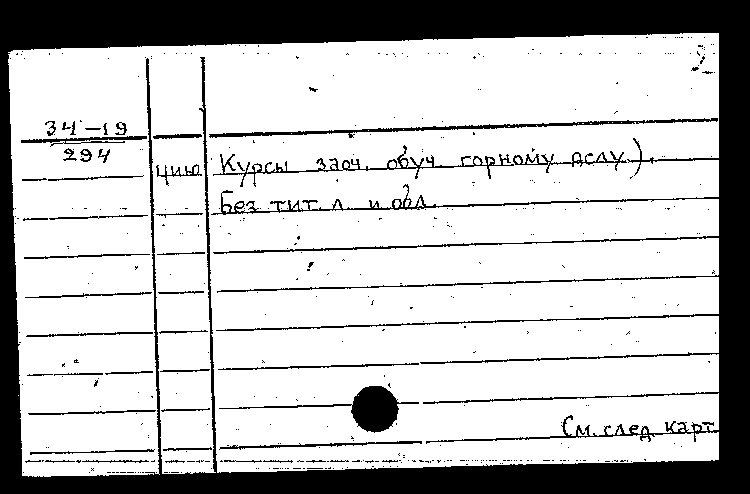 2
34-19
294
цию Курсы заоч. обуч. горному делу).
Без тит. л. и обл.
См. след. карт